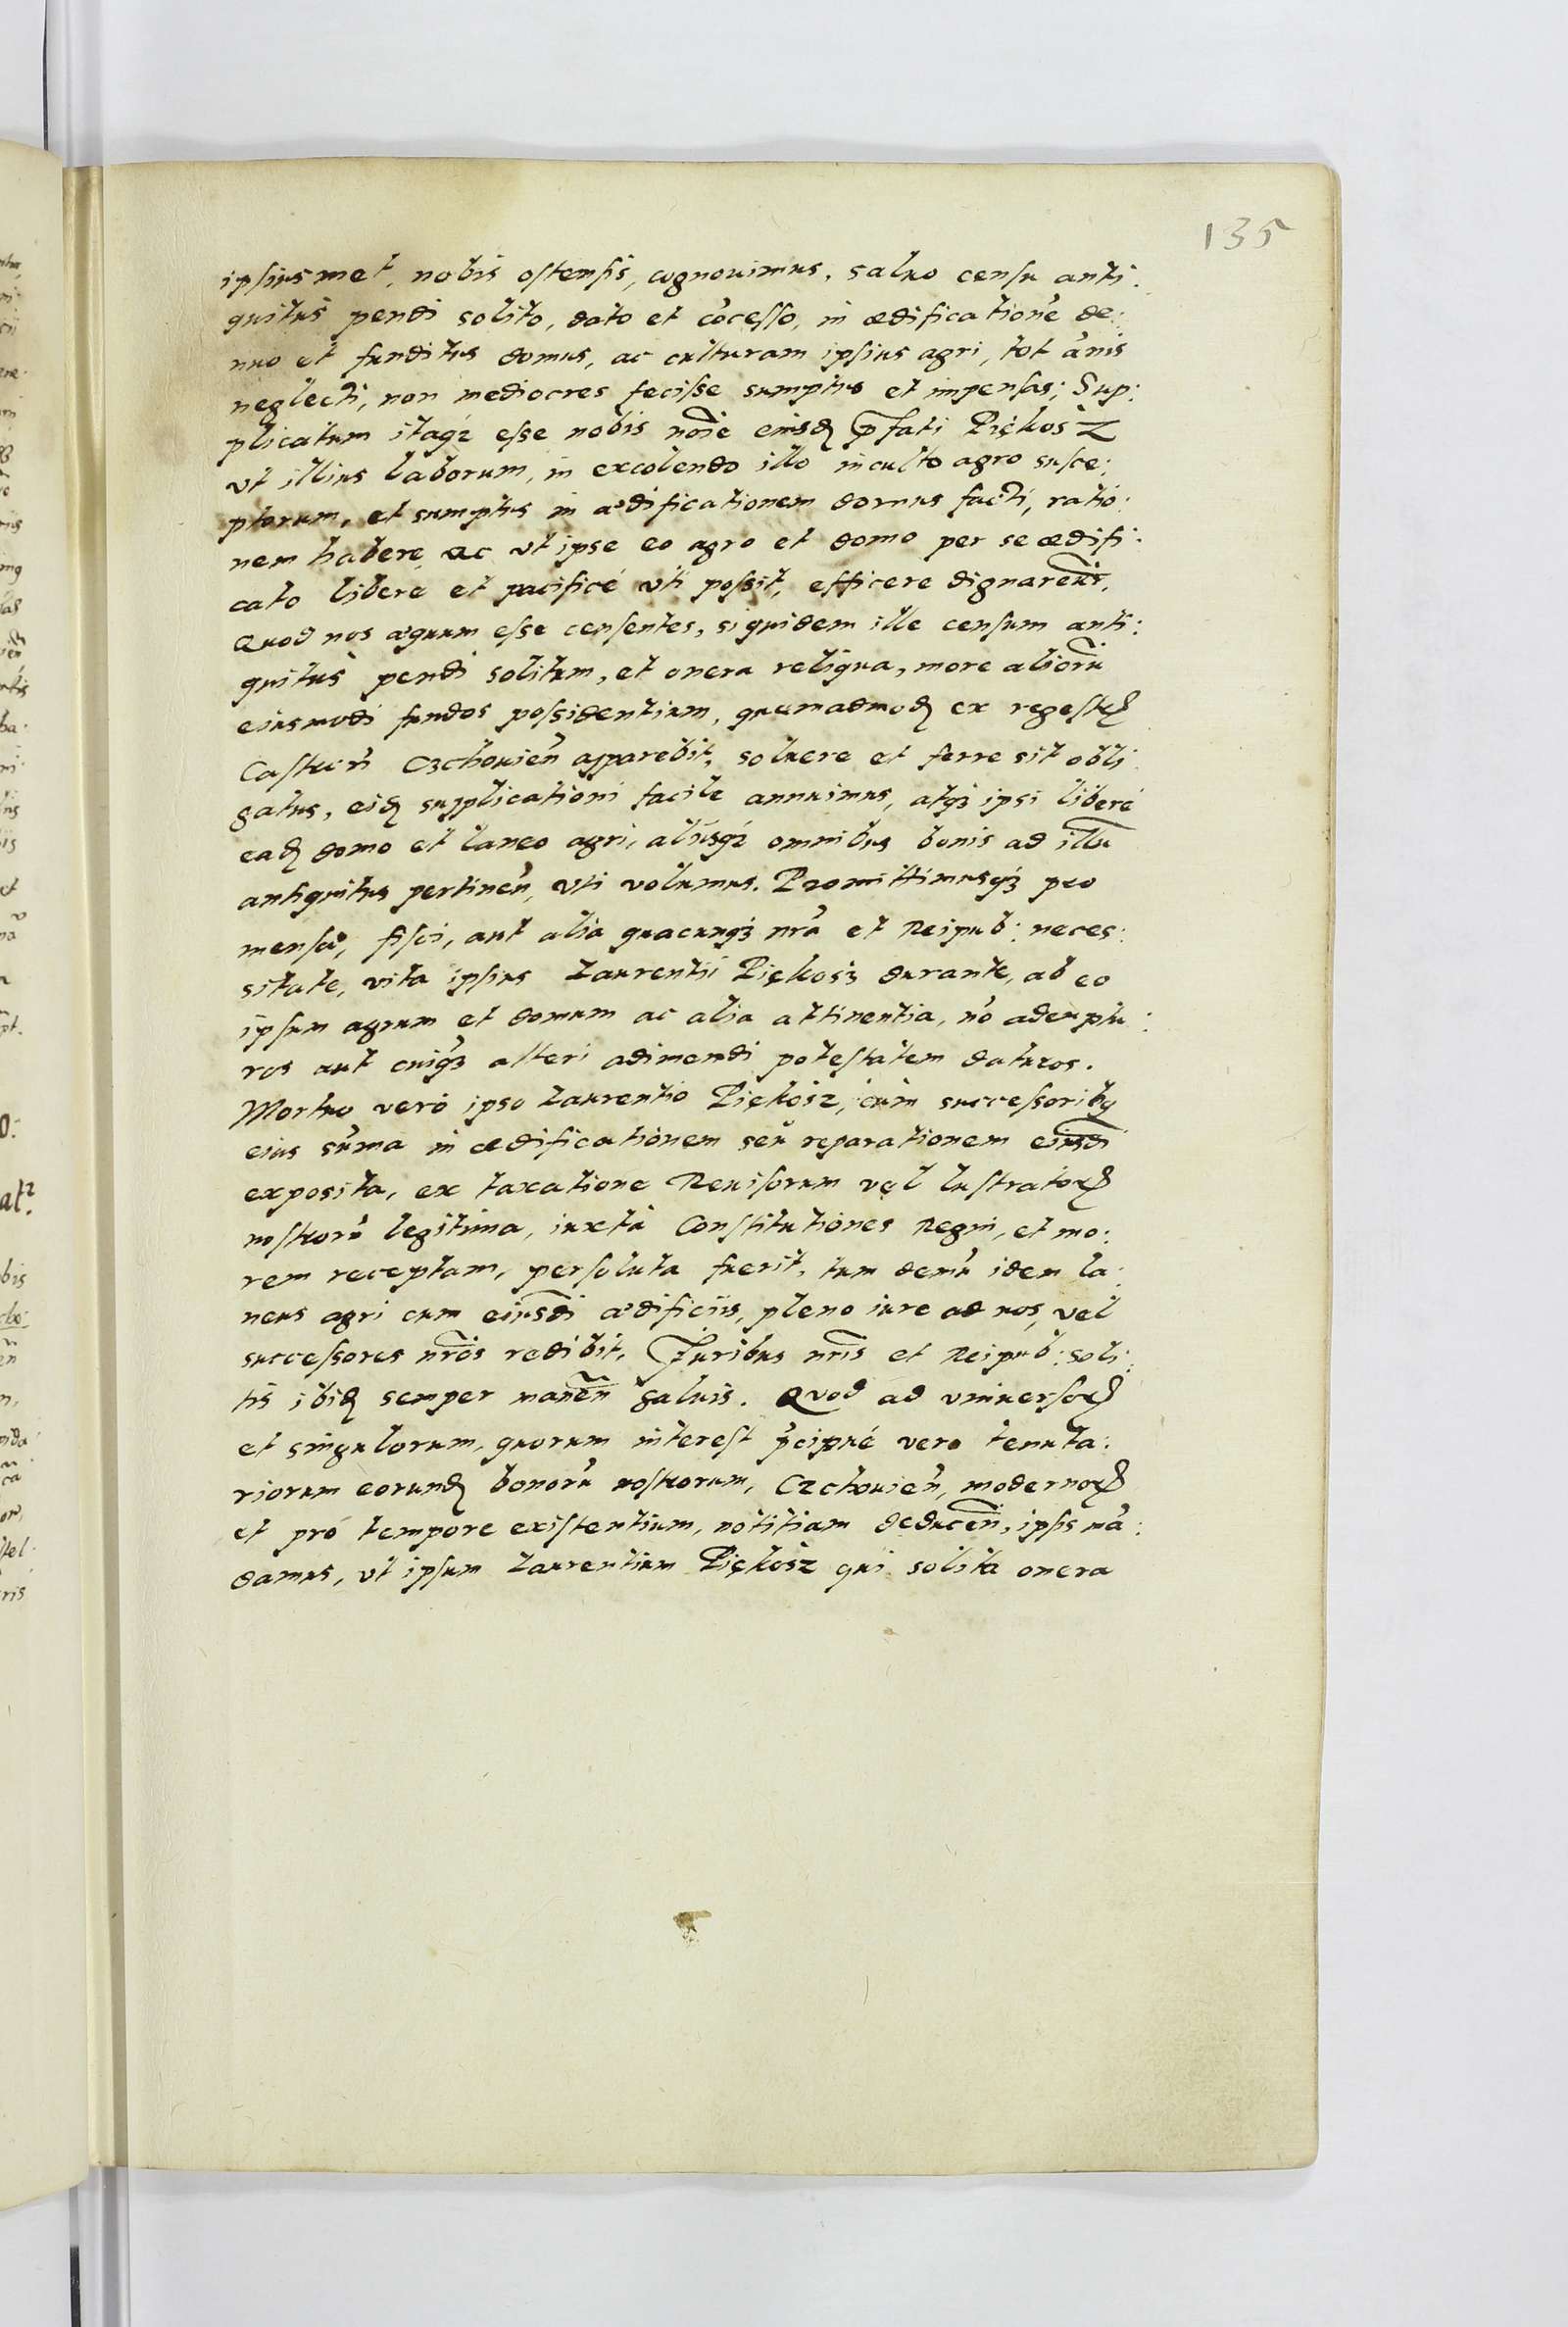 135
ipsiusmet, nobis ostensis, cognouimus, saluo censu anti:
quitus pendi solito, dato et cõcesso, in ædificationẽ de:
nuo et funditus domus, ac culturam ipsius agri, tot ãnis
neglecti, non mediocres fecisse sumptus et impensas; Sup:
plicatum itaq₃ esse nobis noĩe eiusd̃ p̃fati Piękosz
vt illius laborum, in excolendo illo inculto agro susce:
ptorum, et sumptus in ædificationem domus facti, ratio:
nem habere, ac vt ipse eo agro et domo per se ædifi:
cato liberè et pacificé vti possit, efficere dignaremr̃,
Quod nos æquum esse censentes, siquidem ille censum anti:
quitus pendi solitum, et onera reliqua, more aliorũ
eiusmodi fundos possidentium, quemadmod̃ ex regestꝭ
Castren̄ Czchouien̄ apparebit, soluere et ferre sit obli
gatus, eid̃ supplicationi facile annuimus, atq₃ ipsi liberé
ead̃ domo et laneo agri, alijsq₃ omnibus bonis ad illũ
antiquitus pertinen̄, vti volumus. Promittimusq₃ pro
mensæ, fisci, aut alia quacunq₃ nr̃a et Reipub: neces:
sitate, vita ipsius Laurentii Piękosz durante, ab eo
ipsum agrum et domum ac alia attinentia, nõ ademptu:
ros aut cuiq₃ alteri adimendi potestatem daturos.
Mortuo verò ipso Laurentio Piękosz, cùm successoribꝰ
eius sũma in ædificationem seu reparationem eiusdi
exposita, ex taxatione Reuisorum vel lustratoꝝ
nostrorũ legitima, iuxta Constitutiones Regni, et mo:
rem receptam, persoluta fuerit, tum demũ idem la:
neus agri cum eiusdĩ ædificijs, pleno iure ad nos, vel
successores nr̃os redibit, Juribus nr̃is et Reipub: soli:
tis ibid̃ semper manen̄ saluis. Quod ad vniuersoꝝ
et singulorum, quorum interest p̃cipué vero tenuta:
riorum eorund̃ bonorũ nostrorum, Czchouien̄, modernoꝝ
et pro tempore existentium, notitiam deducen̄, ipsis mã:
damus, vt ipsum Laurentium Piękosz qui solita onera